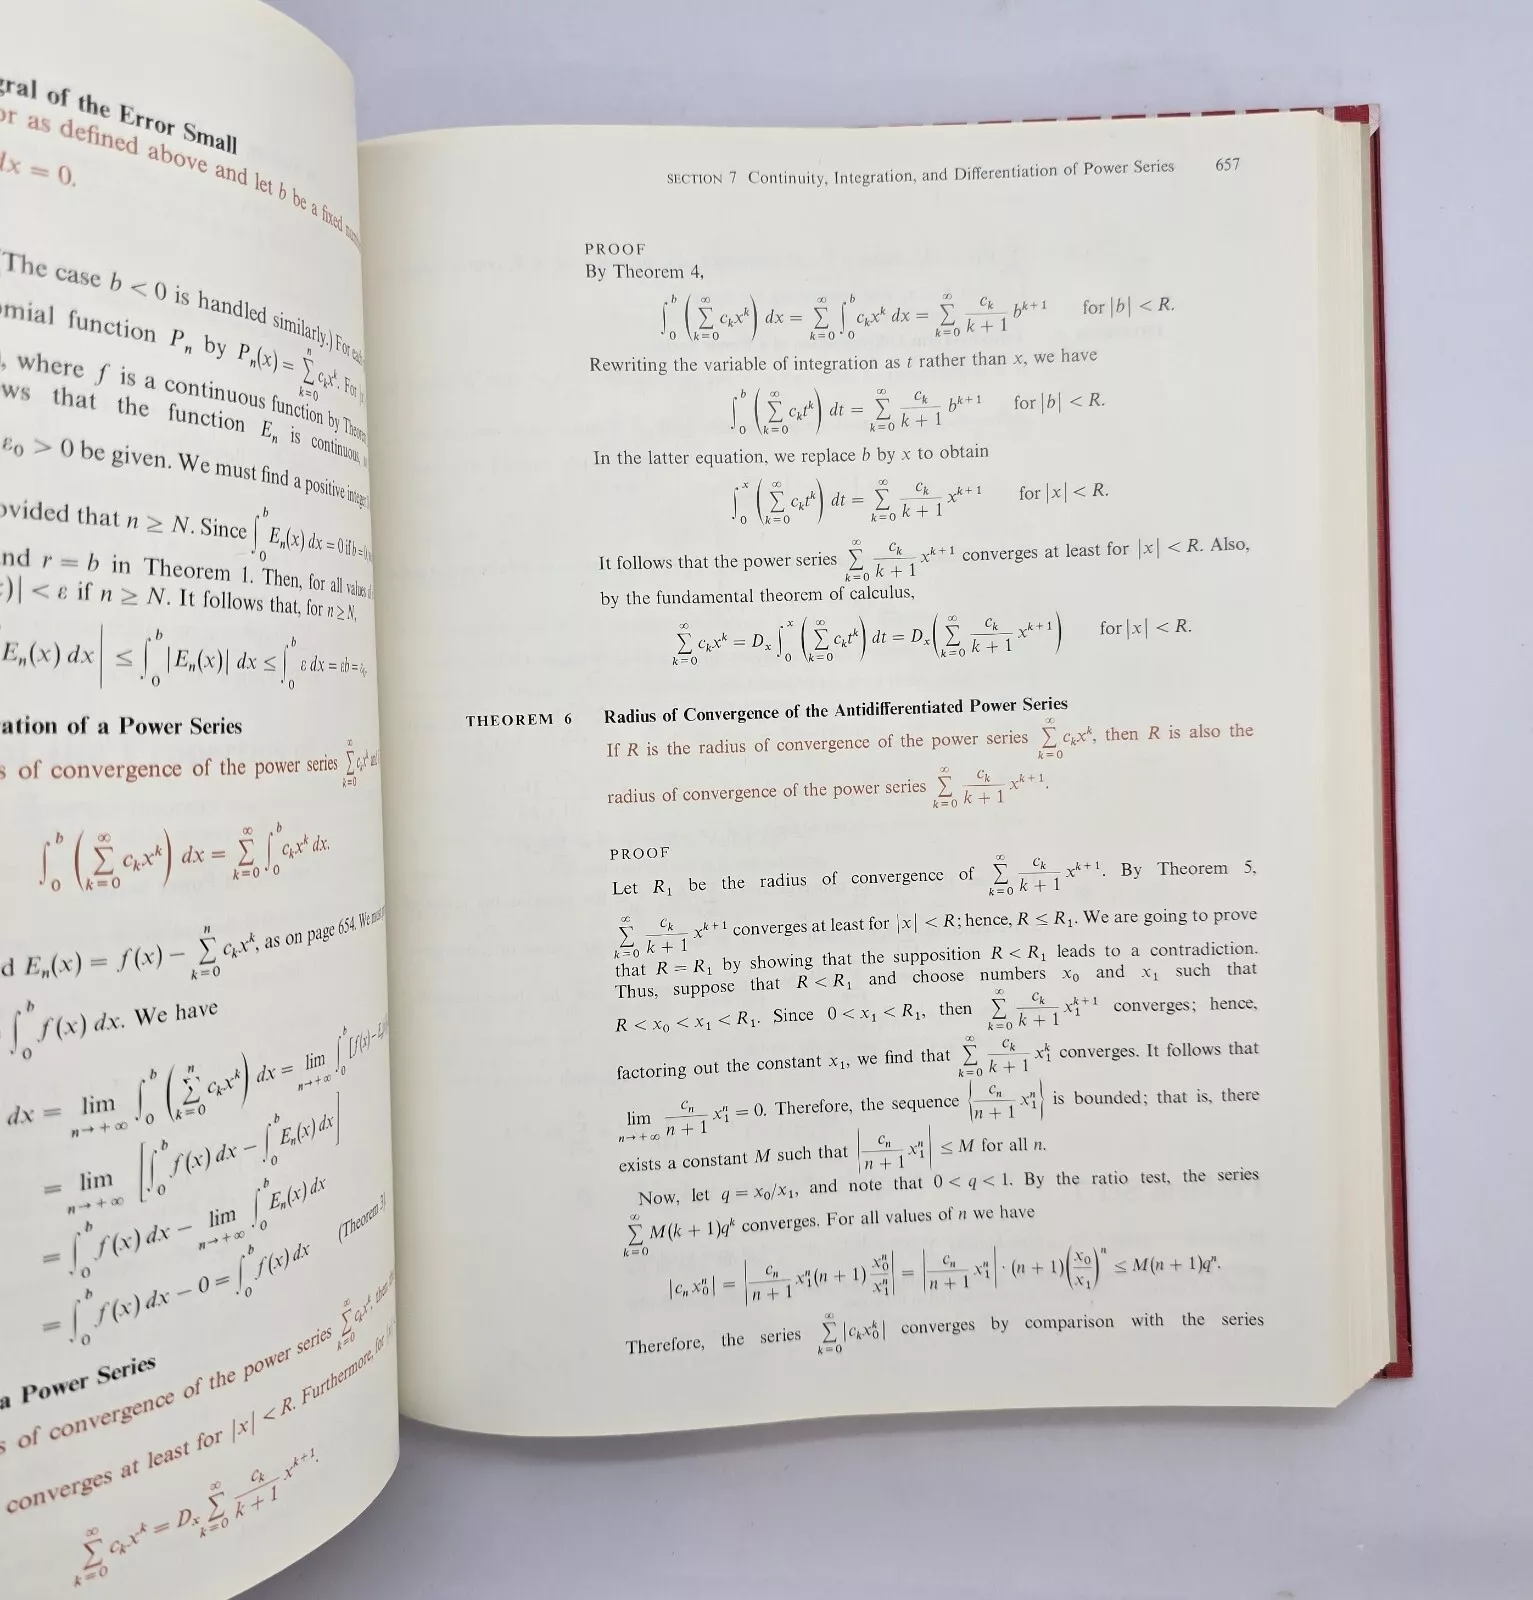 gral of the Error Small
or as defined above and let b be a fixed
dx = 0.
The case b < 0 is handled similarly.) For each
mial function Pₙ by Pₙ(x) = ∑_{k=0}^{n} cₖxᵏ. For
, where f is a continuous function by Theorem
ws that the function Eₙ is continuous,
ε₀ > 0 be given. We must find a positive integer
ovided that n ≥ N. Since ∫₀ᵇ Eₙ(x) dx = 0 if b = 0,
nd r = b in Theorem 1. Then, for all values
)| < ε if n ≥ N. It follows that, for n ≥ N,
Eₙ(x) dx| ≤ ∫₀ᵇ |Eₙ(x)| dx ≤ ∫₀ᵇ ε dx = εb = ε₀
ation of a Power Series
s of convergence of the power series ∑_{k=0}^{∞} cₖxᵏ and
∫₀ᵇ (∑_{k=0}^{∞} cₖxᵏ) dx = ∑_{k=0}^{∞} ∫₀ᵇ cₖxᵏ dx.
d Eₙ(x) = f(x) − ∑_{k=0}^{n} cₖxᵏ, as on page 654. We must
∫₀ᵇ f(x) dx. We have
dx = lim_{n→+∞} ∫₀ᵇ (∑_{k=0}^{n} cₖxᵏ) dx = lim_{n→+∞} ∫₀ᵇ [f(x) − Eₙ(x)]
= lim_{n→+∞} [∫₀ᵇ f(x) dx − ∫₀ᵇ Eₙ(x) dx]
= ∫₀ᵇ f(x) dx − lim_{n→+∞} ∫₀ᵇ Eₙ(x) dx
= ∫₀ᵇ f(x) dx − 0 = ∫₀ᵇ f(x) dx (Theorem 3)
a Power Series
s of convergence of the power series ∑_{k=0}^{∞} cₖxᵏ, then
converges at least for |x| < R. Furthermore, for
∑_{k=0}^{∞} cₖxᵏ = Dₓ ∑_{k=0}^{∞} cₖ/(k + 1) xᵏ⁺¹.
SECTION 7 Continuity, Integration, and Differentiation of Power Series 657
PROOF
By Theorem 4,
∫₀ᵇ (∑_{k=0}^{∞} cₖxᵏ) dx = ∑_{k=0}^{∞} ∫₀ᵇ cₖxᵏ dx = ∑_{k=0}^{∞} cₖ/(k + 1) bᵏ⁺¹ for |b| < R.
Rewriting the variable of integration as t rather than x, we have
∫₀ᵇ (∑_{k=0}^{∞} cₖtᵏ) dt = ∑_{k=0}^{∞} cₖ/(k + 1) bᵏ⁺¹ for |b| < R.
In the latter equation, we replace b by x to obtain
∫₀ˣ (∑_{k=0}^{∞} cₖtᵏ) dt = ∑_{k=0}^{∞} cₖ/(k + 1) xᵏ⁺¹ for |x| < R.
It follows that the power series ∑_{k=0}^{∞} cₖ/(k + 1) xᵏ⁺¹ converges at least for |x| < R. Also,
by the fundamental theorem of calculus,
∑_{k=0}^{∞} cₖxᵏ = Dₓ ∫₀ˣ (∑_{k=0}^{∞} cₖtᵏ) dt = Dₓ(∑_{k=0}^{∞} cₖ/(k + 1) xᵏ⁺¹) for |x| < R.
THEOREM 6 Radius of Convergence of the Antidifferentiated Power Series
If R is the radius of convergence of the power series ∑_{k=0}^{∞} cₖxᵏ, then R is also the
radius of convergence of the power series ∑_{k=0}^{∞} cₖ/(k + 1) xᵏ⁺¹.
PROOF
Let R₁ be the radius of convergence of ∑_{k=0}^{∞} cₖ/(k + 1) xᵏ⁺¹. By Theorem 5,
∑_{k=0}^{∞} cₖ/(k + 1) xᵏ⁺¹ converges at least for |x| < R; hence, R ≤ R₁. We are going to prove
that R = R₁ by showing that the supposition R < R₁ leads to a contradiction.
Thus, suppose that R < R₁ and choose numbers x₀ and x₁ such that
R < x₀ < x₁ < R₁. Since 0 < x₁ < R₁, then ∑_{k=0}^{∞} cₖ/(k + 1) x₁ᵏ⁺¹ converges; hence,
factoring out the constant x₁, we find that ∑_{k=0}^{∞} cₖ/(k + 1) x₁ᵏ converges. It follows that
lim_{n→+∞} cₙ/(n + 1) x₁ⁿ = 0. Therefore, the sequence {cₙ/(n + 1) x₁ⁿ} is bounded; that is, there
exists a constant M such that |cₙ/(n + 1) x₁ⁿ| ≤ M for all n.
Now, let q = x₀/x₁, and note that 0 < q < 1. By the ratio test, the series
∑_{k=0}^{∞} M(k + 1)qᵏ converges. For all values of n we have
|cₙx₀ⁿ| = |cₙ/(n + 1) x₁ⁿ(n + 1) x₀ⁿ/x₁ⁿ| = |cₙ/(n + 1) x₁ⁿ| · (n + 1)(x₀/x₁)ⁿ ≤ M(n + 1)qⁿ.
Therefore, the series ∑_{k=0}^{∞} |cₖx₀ᵏ| converges by comparison with the series